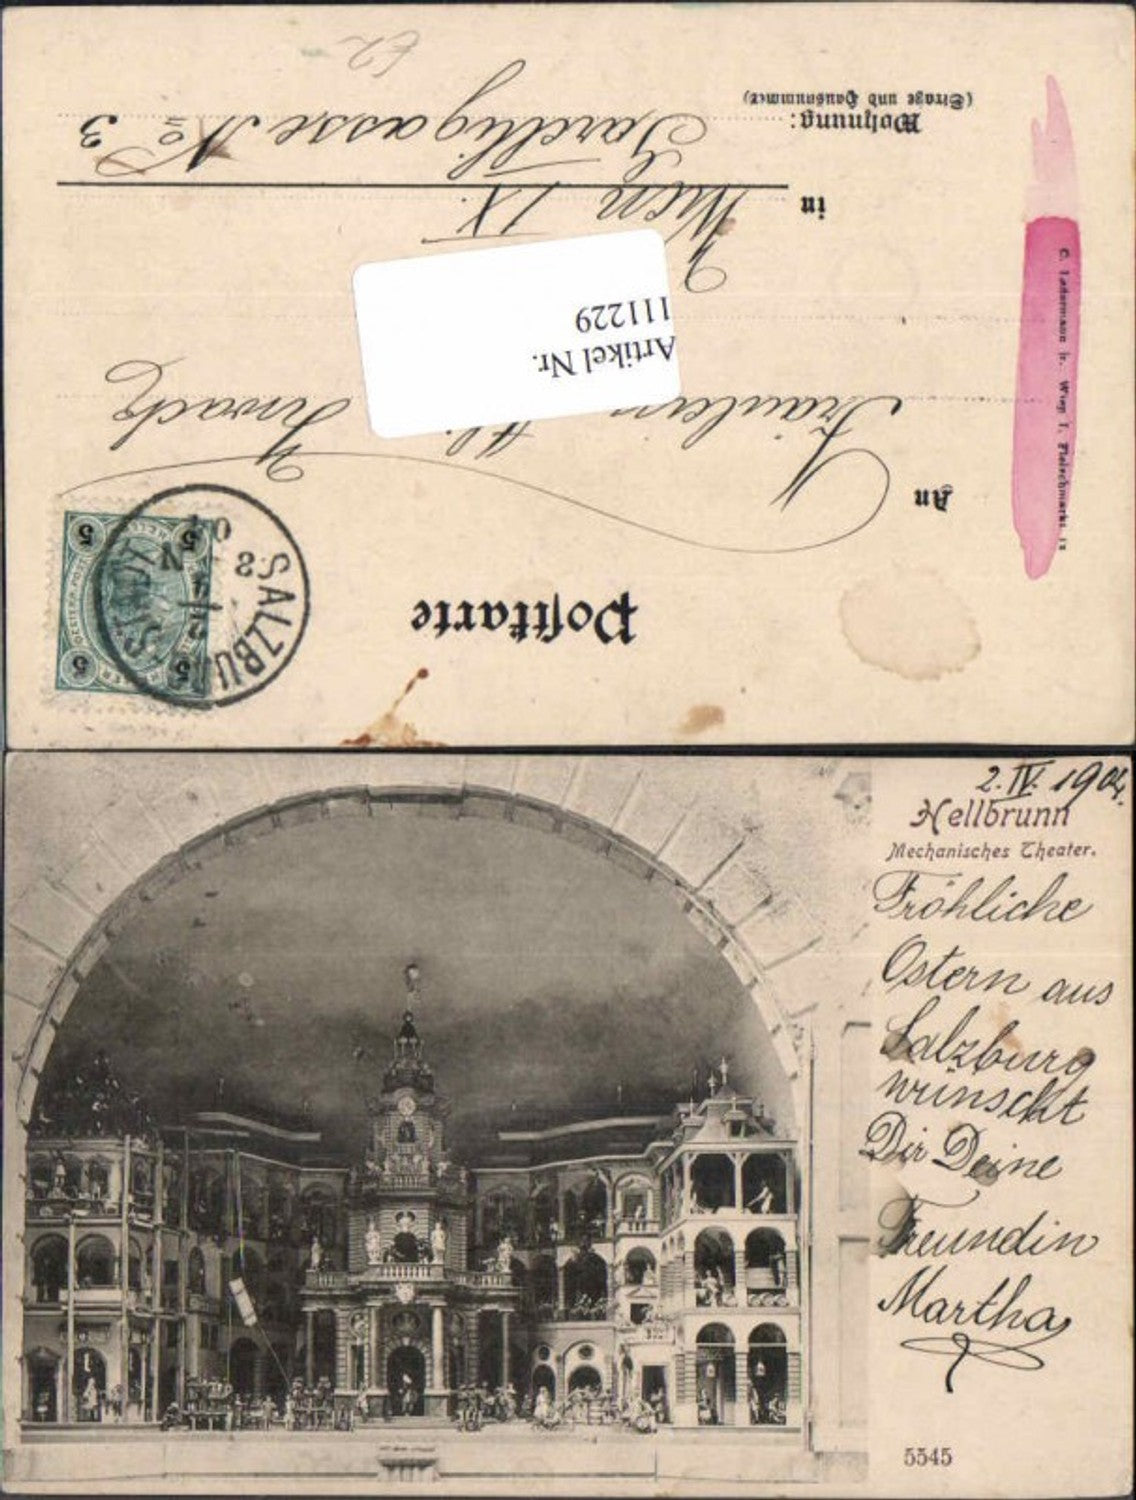 Postkarte
An
Fräulein
Artikel Nr.
111229
in
Wien IX.
Wohnung:
(Straße und Hausnummer)
Garelligasse No 3
SALZBURG STADT
5
5
5
5
C. Ledermann jr. Wien I. Fleischmarkt 12
2. IV. 1904.
Hellbrunn
Mechanisches Theater.
Fröhliche
Ostern aus
Salzburg
wünscht
Dir Deine
Freundin
Martha
5545